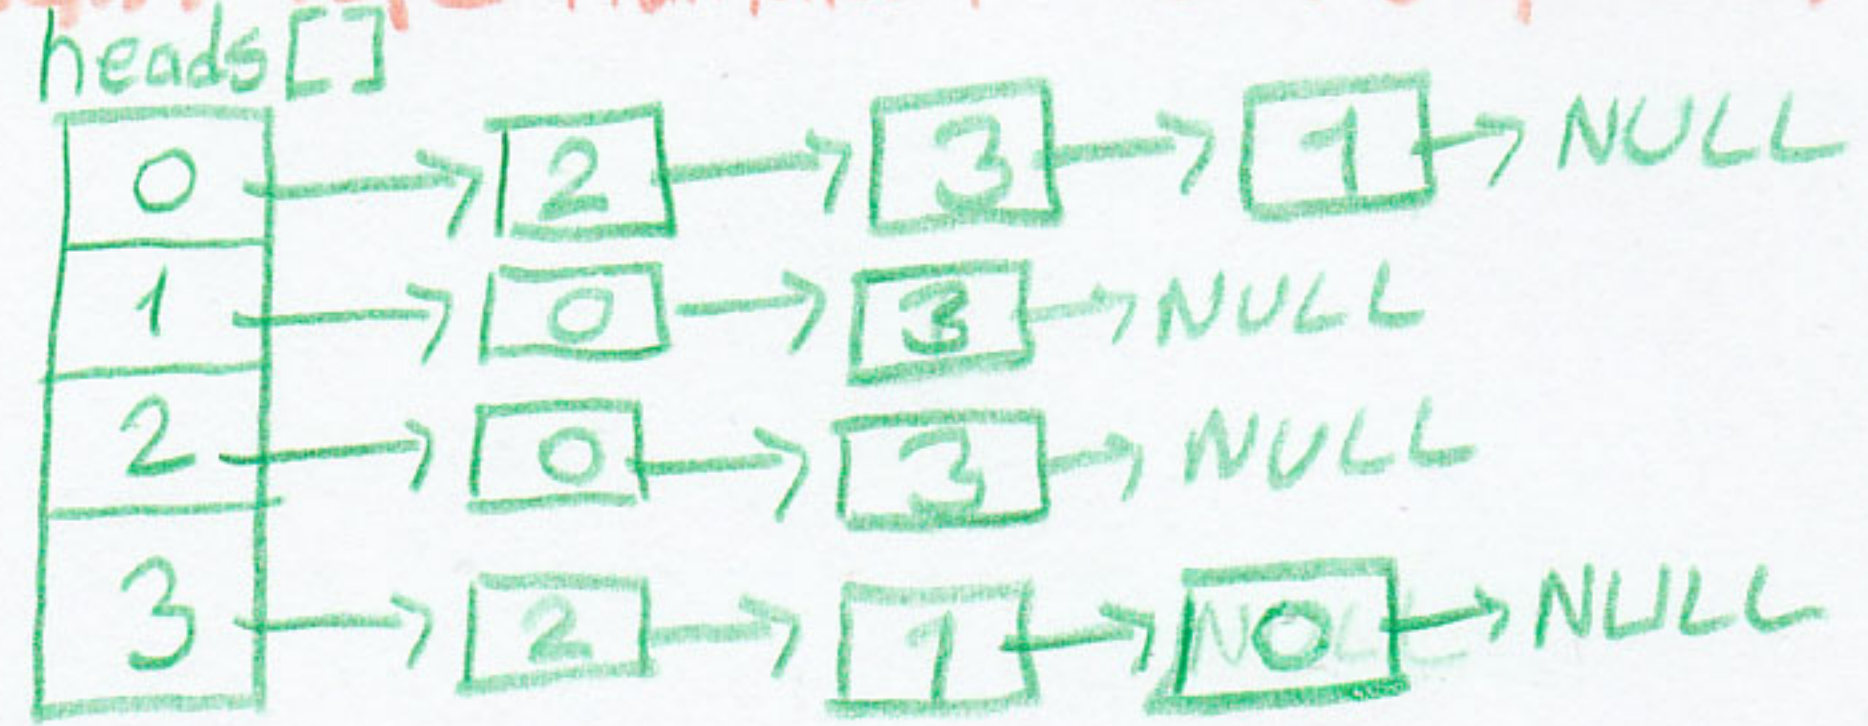 heads[]
0 2 3 1 NULL
1 0 3 NULL
2 0 3 NULL
3 2 1 0 NULL